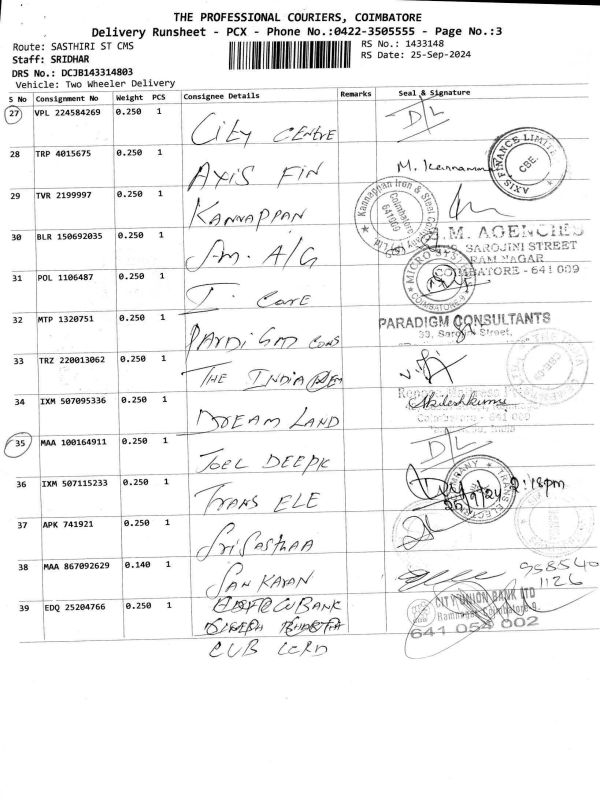 THE PROFESSIONAL COURIERS, COIMBATORE
Delivery Runsheet - PCX - Phone No.:0422-3505555 - Page No.:3
Route: SASTHIRI ST CMS
RS No.: 1433148
Staff: SRIDHAR
RS Date: 25-Sep-2024
DRS No.: DCJB143314803
Vehicle: Two Wheeler Delivery
S No Consignment No Weight PCS Consignee Details Remarks Seal & Signature
27 VPL 224584269 0.250 1 CITY CENTRE D/L
28 TRP 4015675 0.250 1 AXIS FIN M. Kannamma AXIS FINANCE LIMITED CBE.
29 TVR 2199997 0.250 1 KANNAPPAN Kannappan Iron & Steel Coimbatore 641009
30 BLR 150692035 0.250 1 S.M. A/G S.M. AGENCIES
SAROJINI STREET
RAM NAGAR
COIMBATORE - 641 009
31 POL 1106487 0.250 1 I. CARE MICRO SYS COIMBATORE-9
32 MTP 1320751 0.250 1 PARDIGM CONS PARADIGM CONSULTANTS
33, Sarojini Street,
33 TRZ 220013062 0.250 1 THE INDIA CEM
34 IXM 507095336 0.250 1 DREAM LAND Akileshkumar
35 MAA 100164911 0.250 1 JOEL DEEPK D/L
36 IXM 507115233 0.250 1 TRANS ELE 25/9/24 2:18pm
37 APK 741921 0.250 1 Sri Sasthaa
38 MAA 867092629 0.140 1 SANKARAN 958540
1126
39 EDQ 25204766 0.250 1 CUBANK CITY UNION BANK LTD
Ramnagar, Coimbatore-9.
641 054 002
CUB CCRD